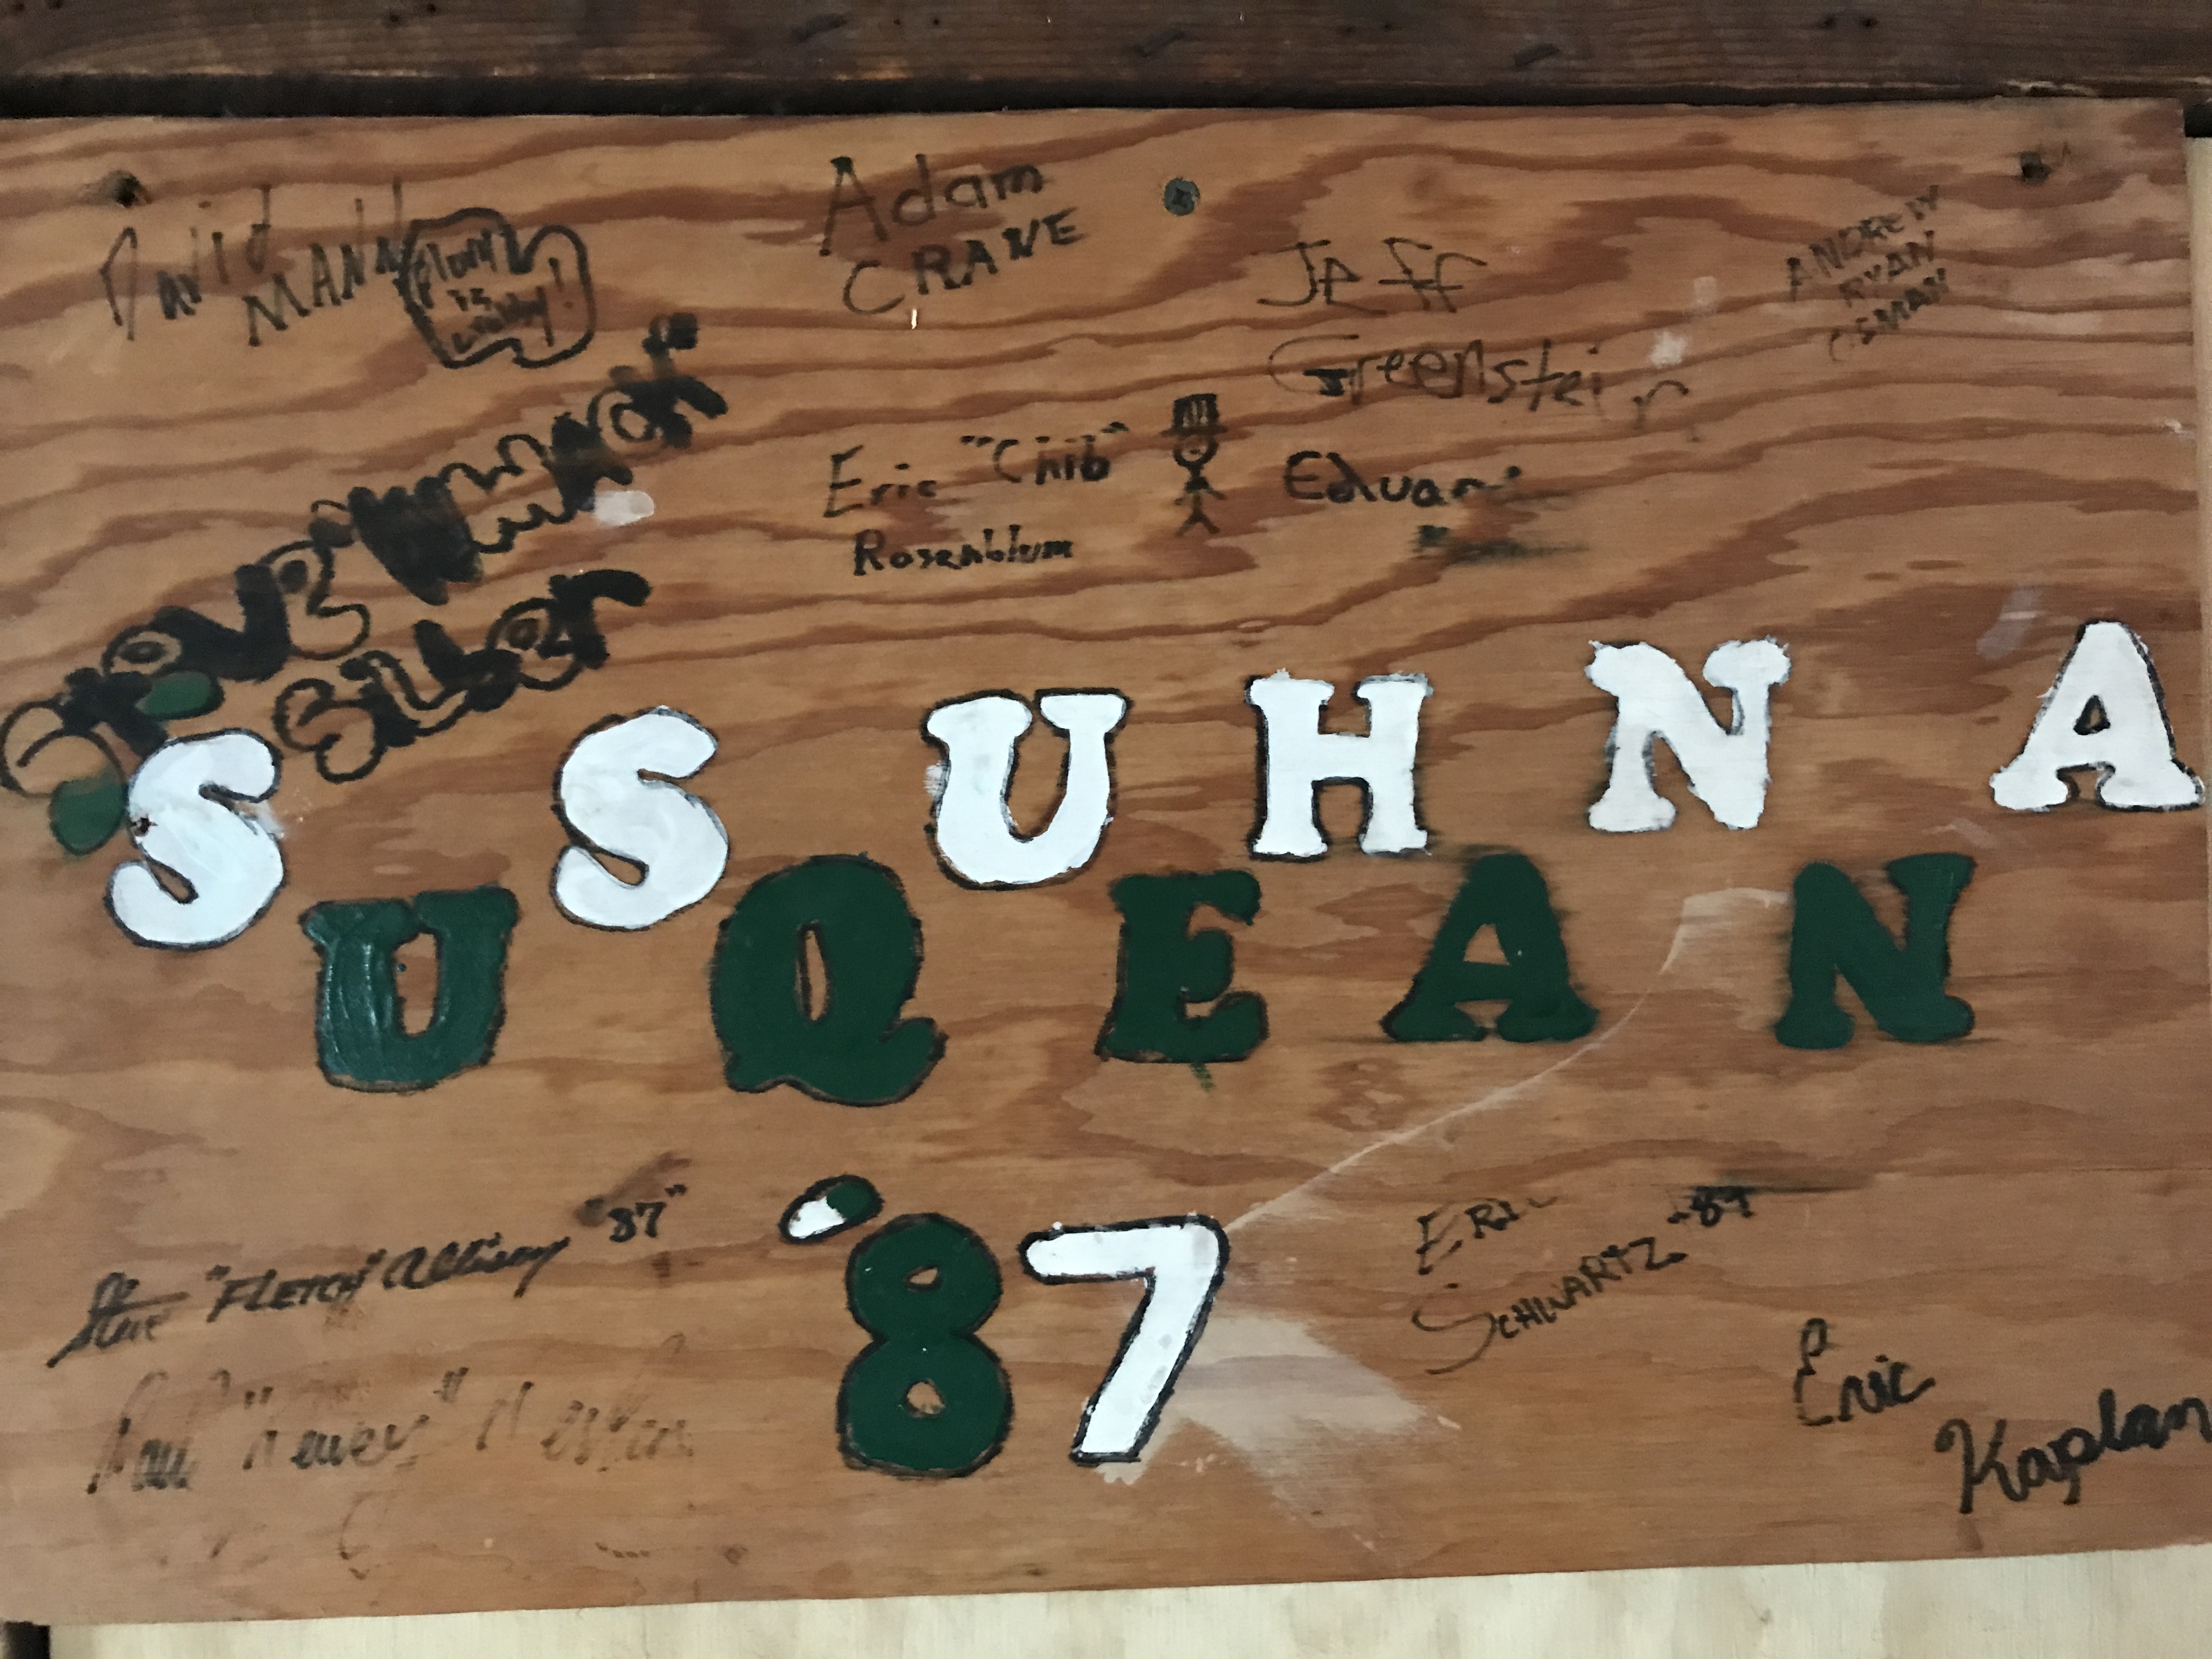 David
MANN
is
Adam
CRANE
Jeff
Greenstein
ANDREW
RYAN
OSMAN
Steve
Silber
Eric "Chib"
Rosenblum
SUSQUEHANNA
'87
Steve "FLETCH" Allison "87"
Paul
ERIC
SCHWARTZ
Eric
Kaplan